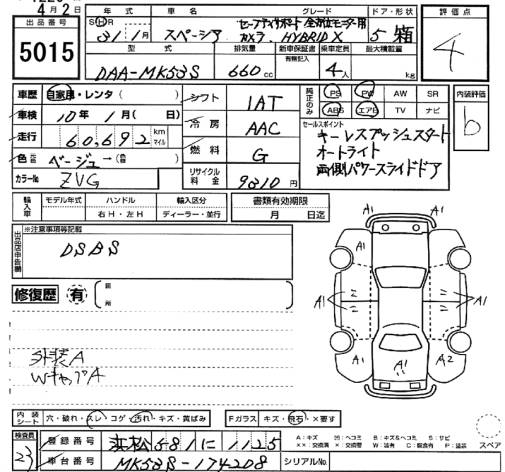 4月2日
出品番号 年式 車名 グレード ドア・形状 評価点
5015
SHR 31/1月 スペーシア セーフティサポート 全方位モニタ用
カメラ、HYBRID X 5 箱 4
型式 排気量 新車保証書 乗車定員 最大積載量
有無記入
DAA-MK53S 660cc 4人 kg
車歴 自家用・レンタ( ) シフト 1AT 純正のみ PS PW AW SR 内装評価
車検 10年 1月( 日) 冷房 AAC ABS エアB TV ナビ b
走行 60,692 km マイル
セールスポイント
キーレスプッシュスタート
オートライト
両側パワースライドドア
色 ベージュ→( ) 燃料 G
カラーNo ZVG リサイクル料金 9810円
輸入車 モデル年式 ハンドル 輸入区分 書類有効期限
右H・左H ディーラー・並行 月 日迄
出品店申告欄 ※注意事項等記載
DSBS
修復歴 有 箇所
外装A
WキャブA
A1
A1 A1
A1 A1
A1 A2
内装シート 穴・破れ・スレ・コゲ・汚れ・キズ・黄ばみ Fガラス キズ・飛石・×要す
検査員 23 登録番号 浜松581に1125
車台番号 MK53S-174208 シリアルNo.
A:キズ B:キズ&ヘコミ S:サビ
スペア